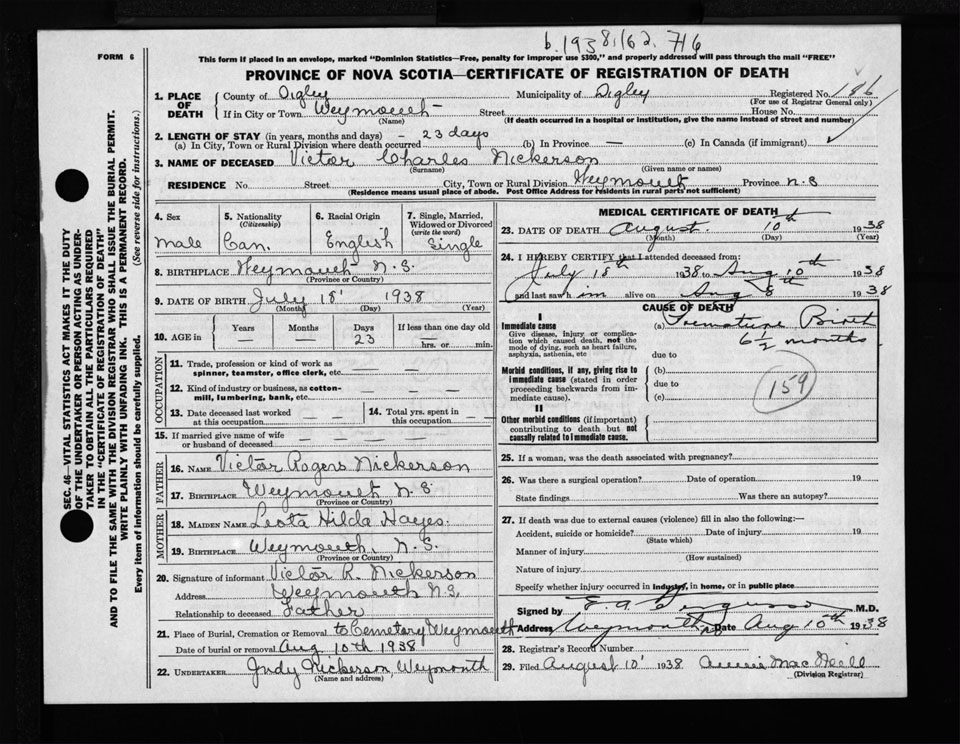 b. 1938. 162. 716
FORM 6
This form if placed in an envelope, marked "Dominion Statistics—Free, penalty for improper use $300," and properly addressed will pass through the mail "FREE"
PROVINCE OF NOVA SCOTIA—CERTIFICATE OF REGISTRATION OF DEATH
SEC. 46—VITAL STATISTICS ACT MAKES IT THE DUTY
OF THE UNDERTAKER OR PERSON ACTING AS UNDER-
TAKER TO OBTAIN ALL THE PARTICULARS REQUIRED
IN THE "CERTIFICATE OF REGISTRATION OF DEATH"
AND TO FILE THE SAME WITH THE DIVISION REGISTRAR WHO SHALL ISSUE THE BURIAL PERMIT.
WRITE PLAINLY WITH UNFADING INK. THIS IS A PERMANENT RECORD.
Every item of information should be carefully supplied. (See reverse side for instructions.)
1. PLACE OF DEATH County of Digby Municipality of Digby Registered No. 186
(For use of Registrar General only)
If in City or Town Weymouth Street House No.
(Name) (If death occurred in a hospital or institution, give the name instead of street and number)
2. LENGTH OF STAY (in years, months and days) – 23 days
(a) In City, Town or Rural Division where death occurred (b) In Province — (c) In Canada (if immigrant)
3. NAME OF DECEASED Victor Charles Nickerson
(Surname) (Given name or names)
RESIDENCE No. Street City, Town or Rural Division Weymouth Province N.S
(Residence means usual place of abode. Post Office Address for residents in rural parts not sufficient)
4. Sex Male
5. Nationality (Citizenship) Can.
6. Racial Origin English
7. Single, Married, Widowed or Divorced (write the word) Single
8. BIRTHPLACE Weymouth N.S.
(Province or Country)
9. DATE OF BIRTH July 18' 1938
(Month) (Day) (Year)
10. AGE in Years — Months — Days 23 If less than one day old hrs. or min.
OCCUPATION
11. Trade, profession or kind of work as spinner, teamster, office clerk, etc. — —
12. Kind of industry or business, as cotton-mill, lumbering, bank, etc. — —
13. Date deceased last worked at this occupation — —
14. Total yrs. spent in this occupation — —
15. If married give name of wife or husband of deceased — — — —
FATHER
16. NAME Victor Rogers Nickerson
17. BIRTHPLACE Weymouth N.S.
(Province or Country)
MOTHER
18. MAIDEN NAME Leota Hilda Hayes.
19. BIRTHPLACE Weymouth, N.S.
(Province or Country)
20. Signature of informant Victor R. Nickerson
Address Weymouth N.S.
Relationship to deceased Father
21. Place of Burial, Cremation or Removal to Cemetary Weymouth
Date of burial or removal Aug 10th 1938
22. UNDERTAKER Nickerson, Weymouth
(Name and address)
MEDICAL CERTIFICATE OF DEATH
23. DATE OF DEATH August. 10th 1938
(Month) (Day) (Year)
24. I HEREBY CERTIFY that I attended deceased from:
July 18th 1938 to Aug 10th 1938
and last saw him alive on Aug 8th 1938
CAUSE OF DEATH
I
Immediate cause (a) Premature Birth
6½ months.
Give disease, injury or complication which caused death, not the mode of dying, such as heart failure, asphyxia, asthenia, etc
due to
Morbid conditions, if any, giving rise to immediate cause (stated in order proceeding backwards from immediate cause).
(b)
due to
(c)
159
II
Other morbid conditions (if important) contributing to death but not causally related to immediate cause.
25. If a woman, was the death associated with pregnancy?
26. Was there a surgical operation? Date of operation 19
State findings Was there an autopsy?
27. If death was due to external causes (violence) fill in also the following:—
Accident, suicide or homicide? Date of injury 19
(State which)
Manner of injury
(How sustained)
Nature of injury
Specify whether injury occurred in industry, in home, or in public place
Signed by E. A. Ferguson M.D.
Address Weymouth NS Date Aug 10th 1938
28. Registrar's Record Number
29. Filed August 10' 1938 Annie MacNeill
(Division Registrar)